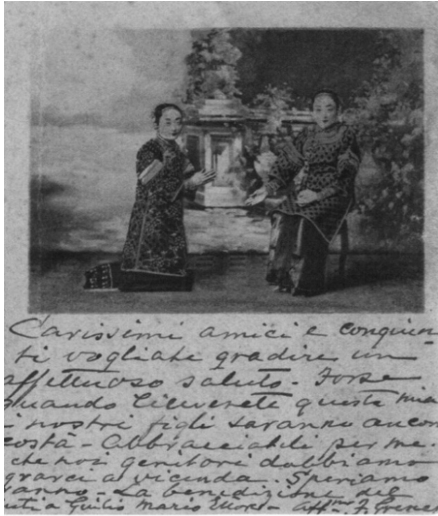 Carissimi amici e congiun
ti vogliate gradire un
affettuoso saluto - Forse
quando riceverete questa mia
i nostri figli saranno ancor
costà - Abbracciateli per me.
che noi genitori dobbiamo
grarci a vicenda. Speriamo
La benedizione del
a Giulio Mario Ettore - Aff